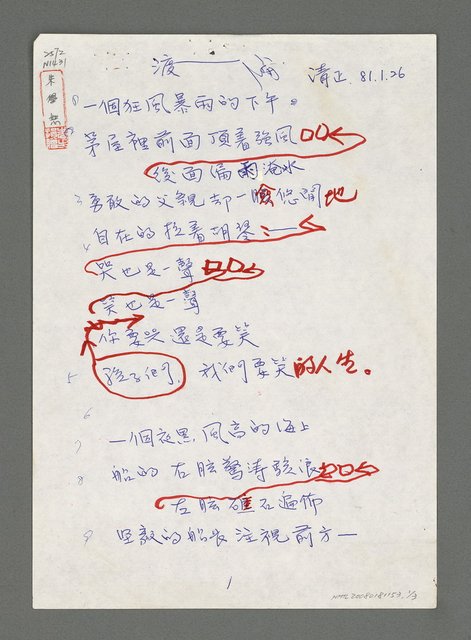 2572
N1431
朱學恕
渡——
清正 81.1.26
一個狂風暴雨的下午。
茅屋裡前面頂着強風
後面偏雨淹水
3 勇敢的父親却一臉悠閒地
4 自在的拉着胡琴：—
哭也是一聲
笑也是一聲
你要哭還是要笑
5 孩子們， 我們要笑的人生。
6
7 一個夜黑風高的海上
8 船的右舷驚濤駭浪
左舷礁石遍佈
9 堅毅的船長注視前方—
1
NMTL20080181153, 1/3